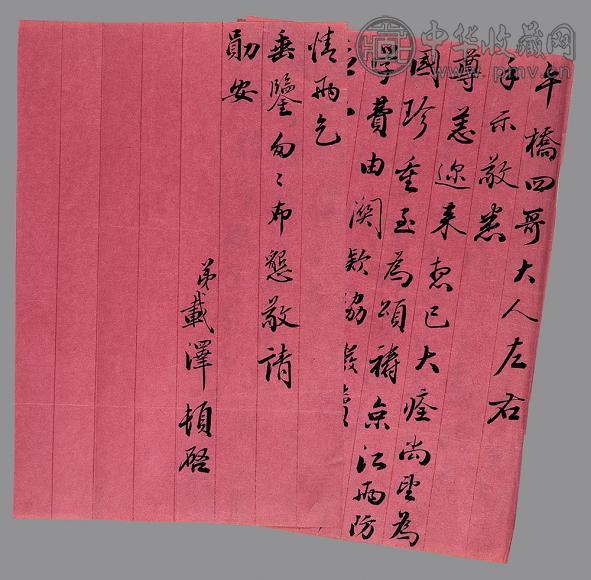 中华收藏网
www.pmv.cn
午橋四哥大人左右
手示敬悉
尊恙迩来想已大痊尚望為
國珍重至為頌禱京江兩防
學費由関款協
情而乞
垂鑒匆匆布懇敬請
勛安
弟載澤頓啓